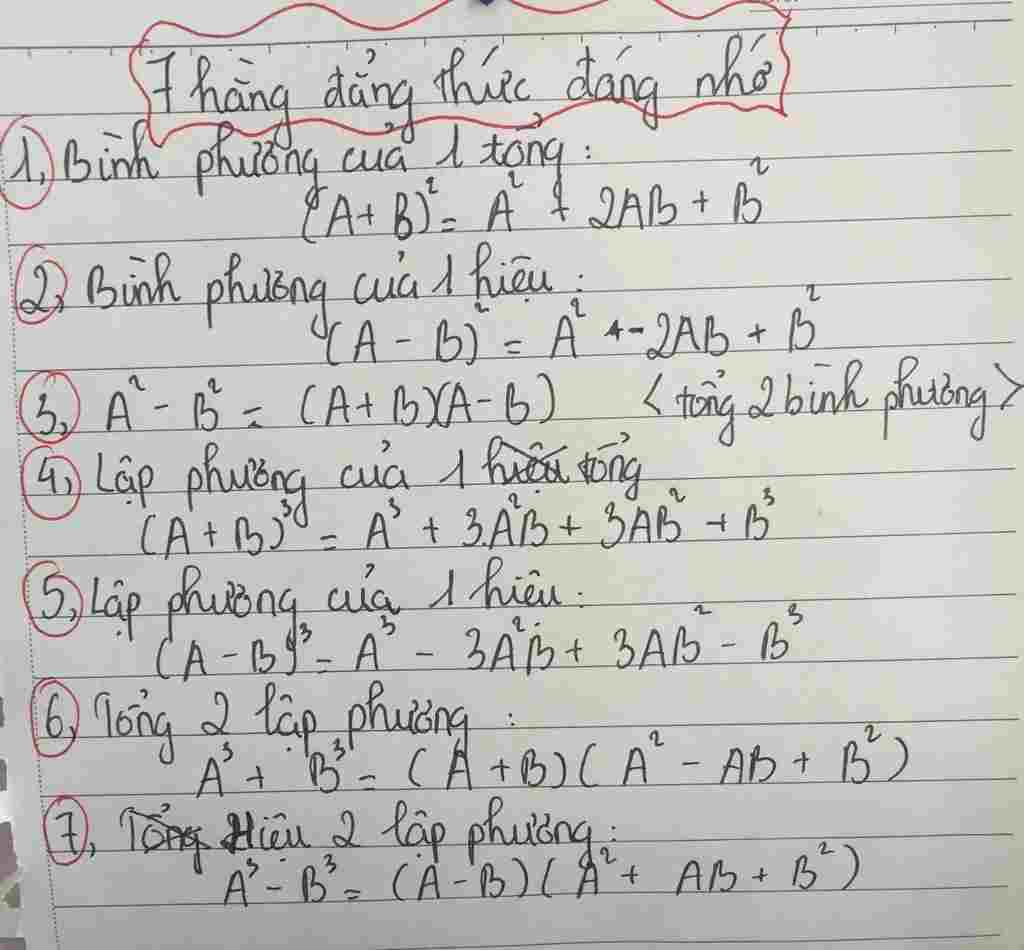 7 hằng đẳng thức đáng nhớ
1, Bình phương của 1 tổng:
(A + B)² = A² + 2AB + B²
2, Bình phương của 1 hiệu:
(A - B)² = A² - 2AB + B²
3, A² - B² = (A + B)(A - B) <tổng 2 bình phương>
4, Lập phương của 1 tổng
(A + B)³ = A³ + 3A²B + 3AB² + B³
5, Lập phương của 1 hiệu:
(A - B)³ = A³ - 3A²B + 3AB² - B³
6, Tổng 2 lập phương:
A³ + B³ = (A + B)(A² - AB + B²)
7, Hiệu 2 lập phương:
A³ - B³ = (A - B)(A² + AB + B²)